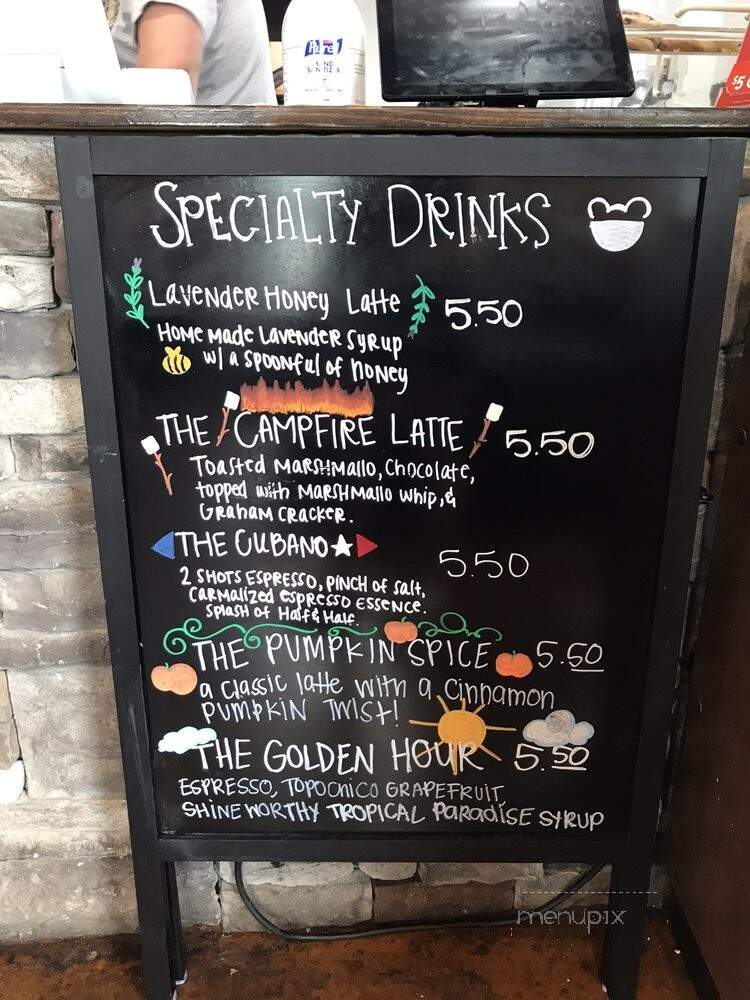 Purell
SPECIALTY DRINKS
LAVENDER HONEY LATTE 5.50
HOME MADE LAVENDER SYRUP
w/ a SPOONFUL OF HONEY
THE CAMPFIRE LATTE 5.50
TOASTED MARSHMALLO, CHOCOLATE,
topped with MARSHMALLO WHIP, &
GRAHAM CRACKER.
THE CUBANO 5.50
2 SHOTS ESPRESSO, PINCH OF SALT,
CARMALIZED ESPRESSO ESSENCE.
SPLASH OF HALF & HALF.
THE PUMPKIN SPICE 5.50
a classic latte with a cinnamon
PUMPKIN TWIST!
THE GOLDEN HOUR 5.50
ESPRESSO, TOPOCHICO GRAPEFRUIT
SHINEWORTHY TROPICAL PARADISE SYRUP
menupix